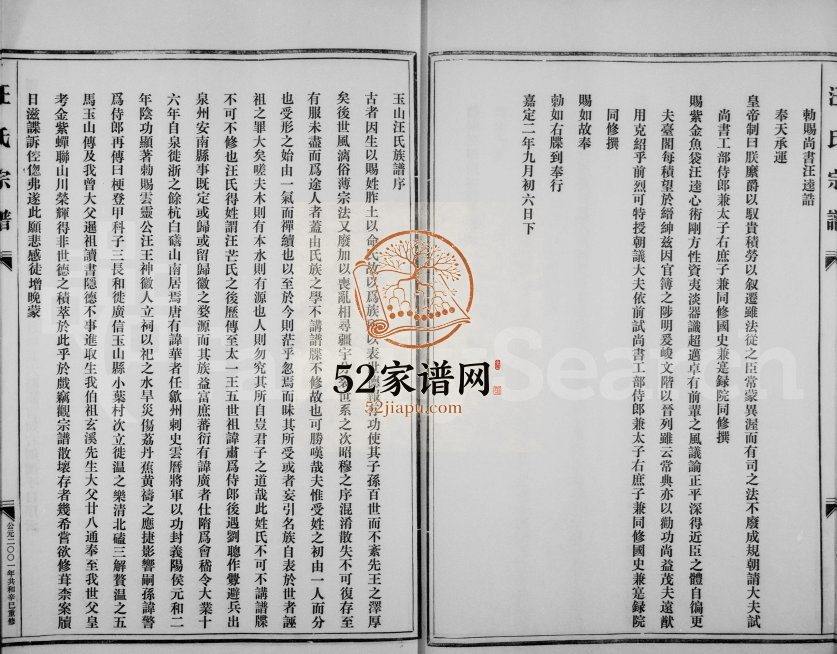 勅賜尚書汪逵誥
奉天承運
皇帝制曰朕縻爵以馭貴積勞以叙遷雖法從之臣常蒙異渥而有司之法不廢成規朝請大夫試
尚書工部侍郎兼太子右庶子兼同修國史兼寔録院同修撰
賜紫金魚袋汪逵心術剛方性資夷淡器識超邁卓有前輩之風議論正平深得近臣之體自徧更
夫臺閣每積望於縉紳兹因官簿之陟明爰峻文階以晉列雖云常典亦以勸功尚益茂夫遠猷
用克紹乎前烈可特授朝議大夫依前試尚書工部侍郎兼太子右庶子兼同修國史兼寔録院
同修撰
賜如故奉
勅如右牒到奉行
嘉定二年九月初六日下
汪氏宗譜
玉山汪氏族譜序
古者因生以賜姓胙土以命氏故以爲族所以表世功使其子孫百世而不紊先王之澤厚
矣後世風漓俗薄宗法又廢加以喪亂相尋疆宇世系之次昭穆之序混淆散失不可復存至
有服未盡而爲途人者蓋由氏族之學不講譜牒不修故也可勝嘆哉夫惟受姓之初由一人而分
也受形之始由一氣而禪續也以至於今則茫乎忽焉而昧其所受或者妄引名族自表於世者誣
祖之罪大矣嗟夫木則有本水則有源也人則勿究其所自豈君子之道哉此姓氏不可不講譜牒
不可不修也汪氏得姓謂汪芒氏之後歷傳至太一王五世祖諱肅爲侍郎後遇劉聰作釁避兵出
泉州安南縣事既定或歸或留歸徽之婺源而其族益富庶蕃衍有諱廣者仕隋爲會稽令大業十
六年自泉徙浙之餘杭白礄山南居焉唐有諱華者任歙州刺史雲曆將軍以功封義陽侯元和二
年陰功顯著勅賜雲靈公汪王神徽人立祠以祀之水旱災傷荔丹蕉黃禱之應捷影響嗣孫諱謷
爲侍郎再傳曰梗登甲科子三長和徙廣信玉山縣小葉村次立徙温之樂清北磕三解贅温之五
馬玉山傳及我曾大父暹祖讀書隱德不事進取生我伯祖玄溪先生大父廿八通奉至我世父皇
考金紫蟬聯山川榮輝得非世德之積萃於此乎於戲竊觀宗譜散壞存者幾希嘗欲修葺柰案牘
日滋諜訴倥傯弗遂此願悲感徒增晚蒙
汪氏宗譜
公元二〇〇一年共和辛巳重修
52家谱网
52jiapu.com